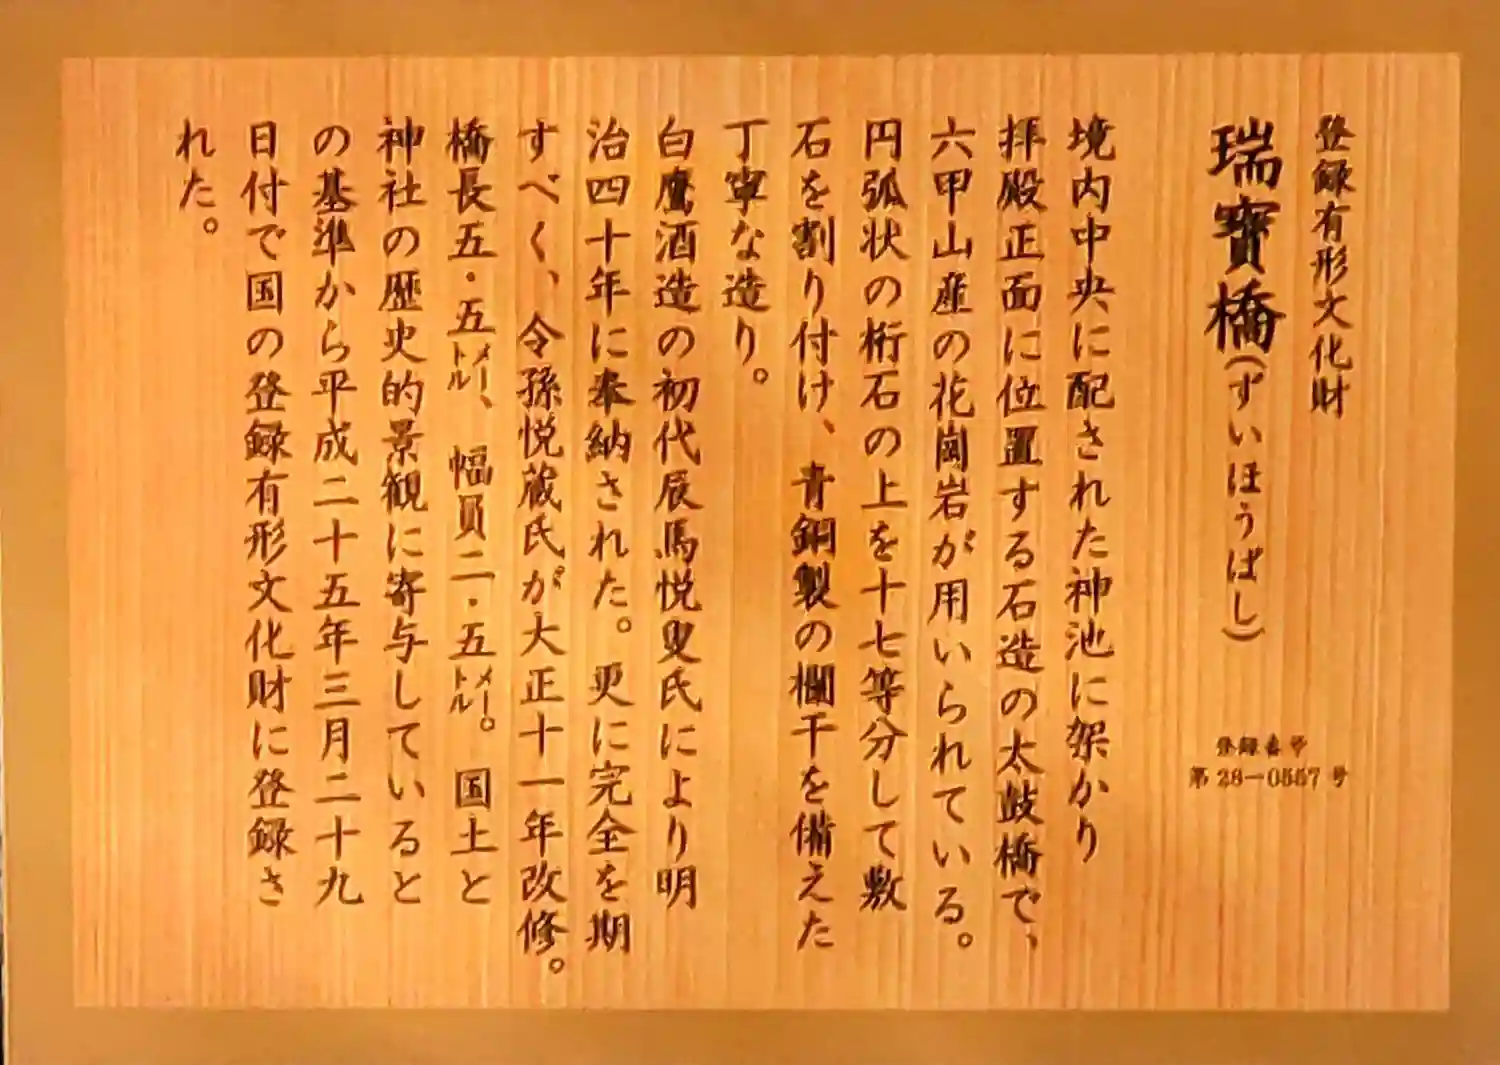 登録有形文化財
瑞寶橋(ずいほうばし)
登録番号
第28-0557号
境内中央に配された神池に架かり
拝殿正面に位置する石造の太鼓橋で、
六甲山産の花崗岩が用いられている。
円弧状の桁石の上を十七等分して敷
石を割り付け、青銅製の欄干を備えた
丁寧な造り。
白鷹酒造の初代辰馬悦叟氏により明
治四十年に奉納された。更に完全を期
すべく、令孫悦蔵氏が大正十一年改修。
橋長五・五メートル、幅員二・五メートル。国土と
神社の歴史的景観に寄与していると
の基準から平成二十五年三月二十九
日付で国の登録有形文化財に登録さ
れた。